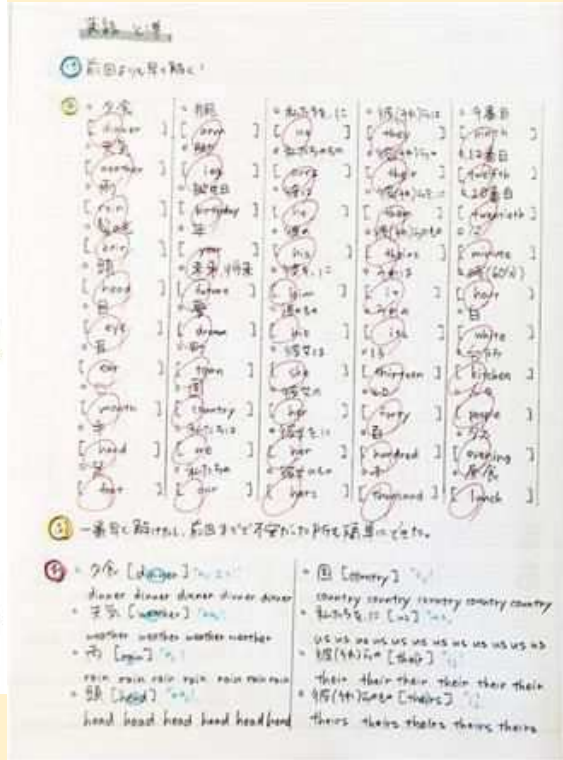 英語
① 前回よりも早く解く!
② 。夕食
[dinner]
。天気
[weather]
。雨
[rain]
[hair]
。頭
[head]
。目
[eye]
[ear]
[mouth]
。手
[hand]
[foot]
。腕
[arm]
[leg]
[birthday]
。年
[year]
。未来、将来
[future]
。夢
[dream]
。町
[town]
。国
[country]
。私たちは
[we]
。私たちの
[our]
。私たちを、に
[us]
。私たちのもの
[ours]
。彼は
[he]
。彼の
[his]
。彼を、に
[him]
。彼のもの
[his]
。彼女は
[she]
。彼女の
[her]
。彼女を、に
[her]
。彼女のもの
[hers]
。彼(それ)らは
[they]
。彼(それ)らの
[their]
。彼(それ)らを、に
[them]
。彼(それ)らのもの
[theirs]
[it]
[its]
。13
[thirteen]
。40
[forty]
。百
[hundred]
。千
[thousand]
。9番目
[ninth]
。12番目
[twelfth]
。20番目
[twentieth]
[minute]
。時(60分)
[hour]
。白
[white]
[kitchen]
[people]
。夕方
[evening]
。昼食
[lunch]
③ 一番早く解けたし、前回までで不安だった所も簡単にできた。
④ 。夕食 [dinner]
dinner dinner dinner dinner dinner
。天気 [weather]
weather weather weather weather
。雨 [rain]
rain rain rain rain rain rain rain
。頭 [head]
head head head head head head
。国 [country]
country country country country country
。私たちを、に [us]
us us us us us us us us us us
。彼(それ)らの [their]
their their their their their their
。彼(それ)らのもの [theirs]
theirs theirs theirs theirs theirs